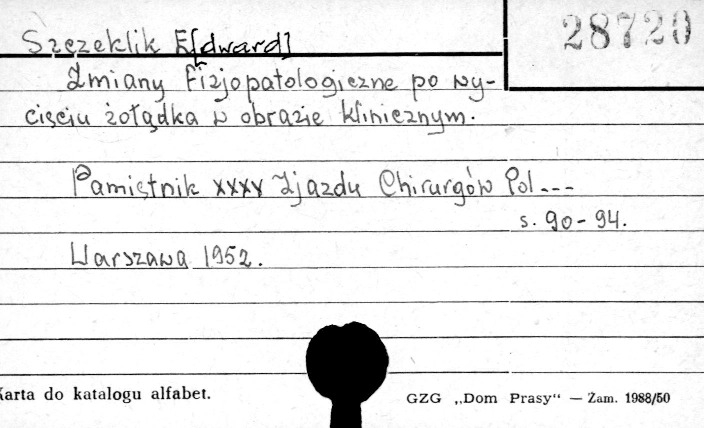 28720
Szczeklik E[dward]
Zmiany fizjopatologiczne po wy-
cięciu żołądka w obrazie klinicznym.
Pamiętnik XXXV Zjazdu Chirurgów Pol---
s. 90-94.
Warszawa 1952.
Karta do katalogu alfabet.
GZG „Dom Prasy“ — Zam. 1988/50